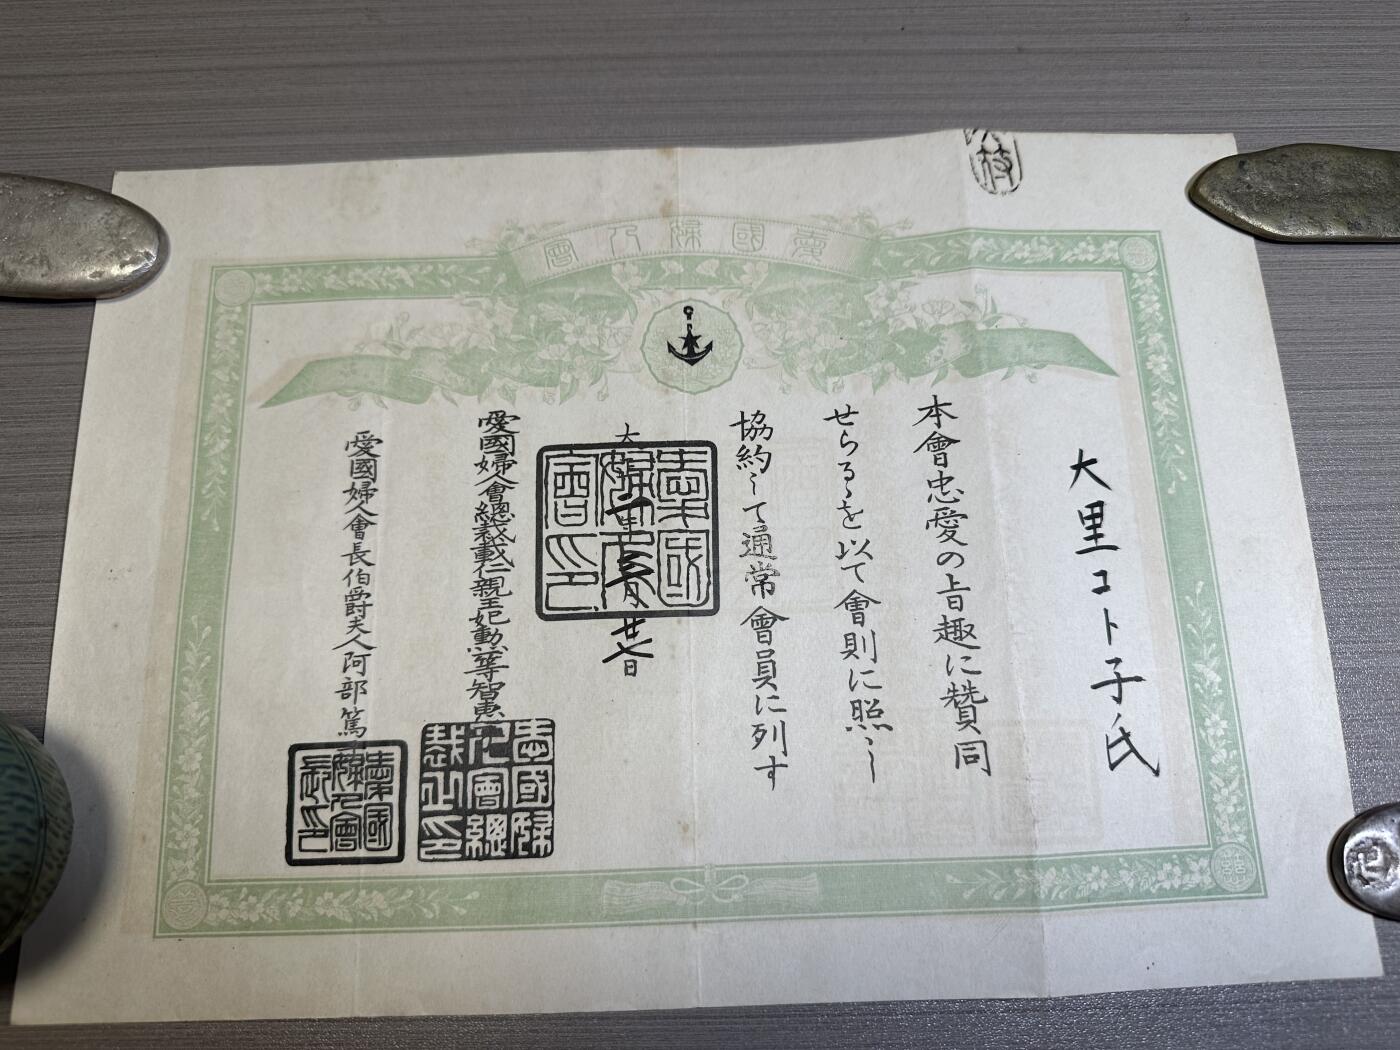 愛國婦人會
大里コト子氏
本會忠愛の旨趣に贊同
せらるゝを以て會則に照し
協約して通常會員に列す
大 年 月廿七日
愛國婦人會印
愛國婦人會總裁載仁親王妃勳一等智惠
愛國婦人會總裁之印
愛國婦人會長伯爵夫人阿部篤
愛國婦人會長印